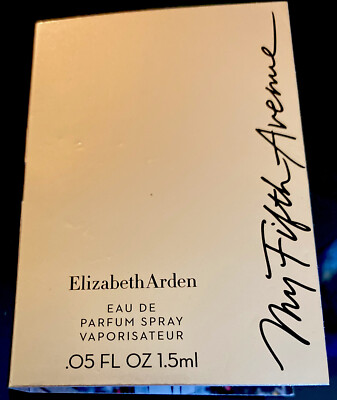 My Fifth Avenue
Elizabeth Arden
EAU DE
PARFUM SPRAY
VAPORISATEUR
.05 FL OZ 1.5ml